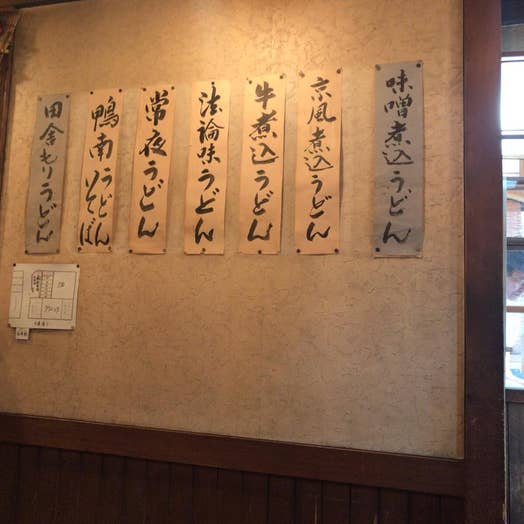 味噌煮込うどん
京風煮込うどん
牛煮込うどん
法論味うどん
常夜うどん
鴨南うどん
そば
田舎もりうどん